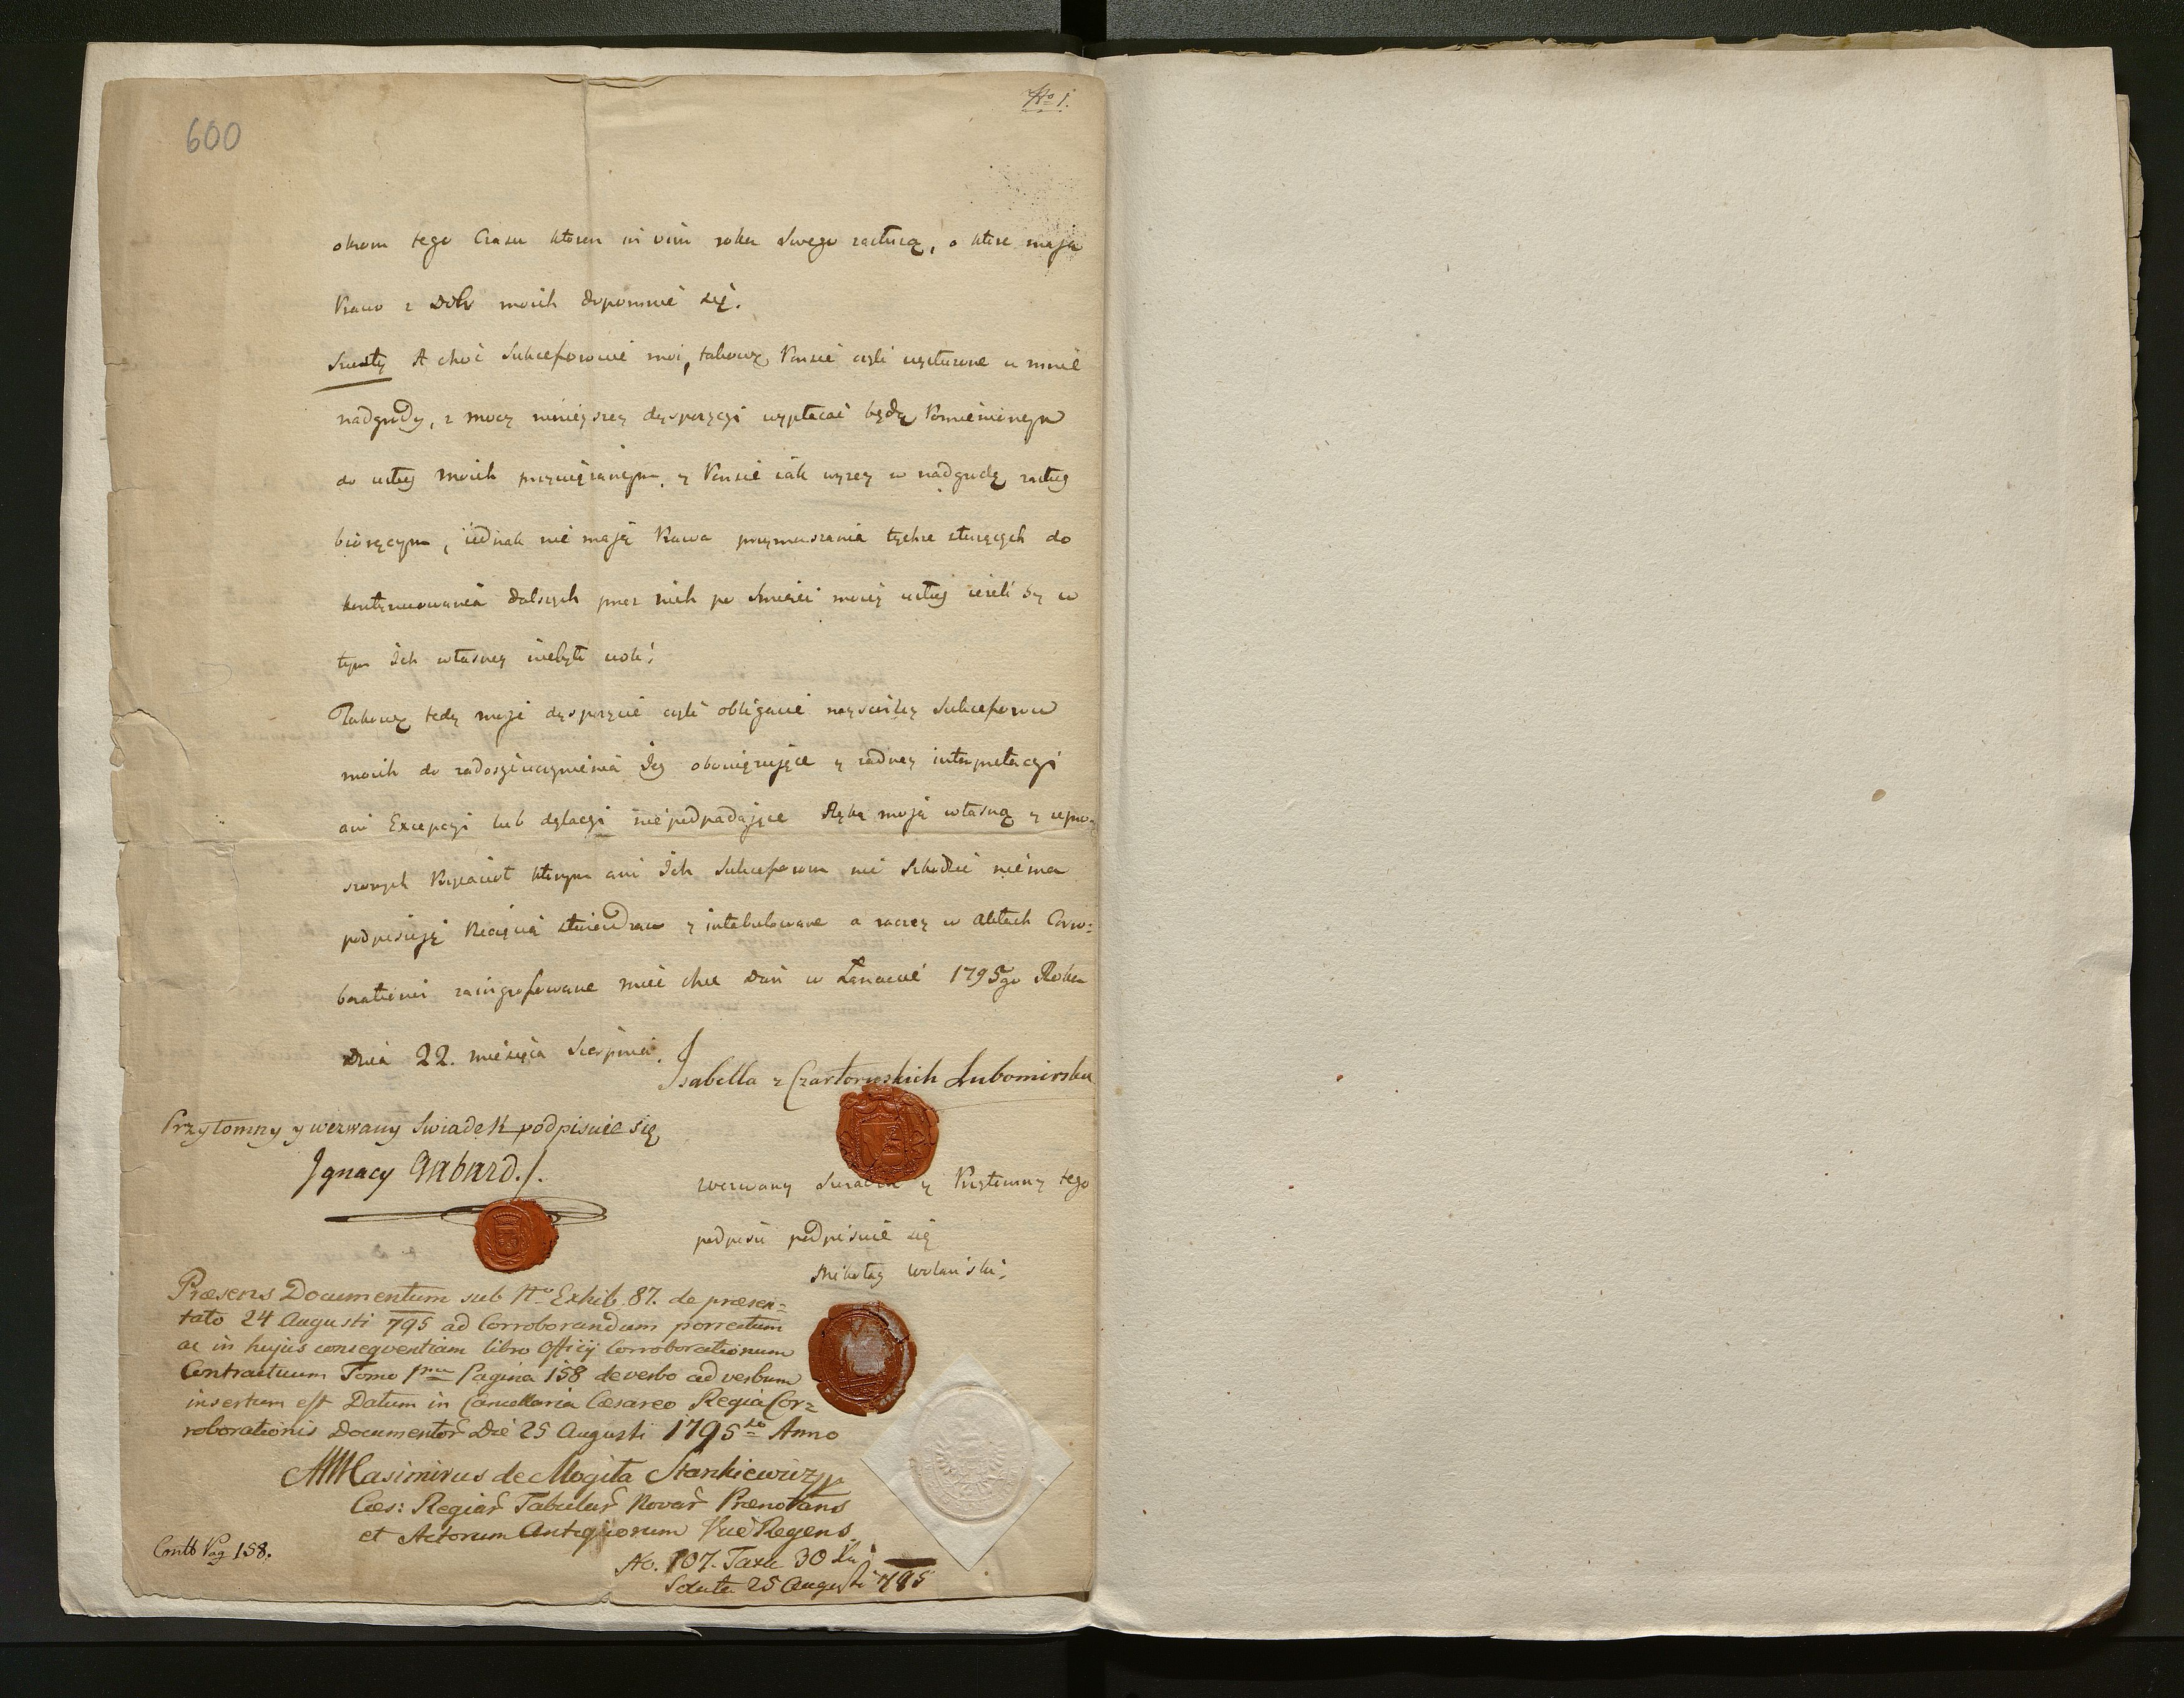 No 1.
600
okrom tego Czasu ktoren in vim roku Swego zasłużą, o ktore mają
Prawo z Dobr moich dopomnieć się.
Szusty A choć Sukcessorowie moi, takowę Pensie czyli wysłużone u mnie
nadgrody, z mocy ninieyszey dyspozycyi wypłacać będą Pomienionym
do usług moich przywiązanym, y Pensie iak wyzey w nadgrodę zasług
biorącym, iednak nie maią Prawa przymuszania tychze służących do
kontynuowania dalszych przez nich po Smierci moiey usług ieżeli by w
tym Ich własney niebyło woli;
Takowę tedy moję dyspozycie czyli obligacie nayscisley Sukcessorow
moich do zadosyć uczynienia Iey obowięzujące y zadney interpretacyi
ani Excepcyi lub dylacyi niepodpadające Ręką moją własną y upro-
szonych Przyiacioł ktorym ani Ich Sukcessorom nic Szkodzić niema
podpisuję Pieczęcią stwierdzam y intabulowane a raczey w Aktach Corro:
borationis zaingrossowane mieć chcę Dan w Łancucie 1795go Roku
Dnia 22. miesiąca Sierpnia.
Isabella z Czartoryskich Lubomirska
Przytomny y wezwany Swiadek podpisuie się
Ignacy Gabard./.
wezwany Swiadek y Przytomny tego
podpisu podpisuie się
Mikołay Wolański;
Præsens Documentum sub No Exhib. 87. de præsen=
tato 24 Augusti 795 ad Corroborandum porrectum
ac in hujus conseqventiam libro Officij Corroborationum
Contractuum Tomo 1mo Pagina 158 de verbo ad verbum
insertum est Datum in Cancellaria Cæsareo Regia Cor=
roborationis Documentor Die 25 Augusti 1795to Anno
Casimirus de Mogiła Stankiewicz
Cæs: Regiar Tabular Novar Prænotans
et Actorum Antiquorum Vice Regens.
Contt Pag 158.
No. 107. Taxa 30 Xr
Soluta 25 Augusti 795